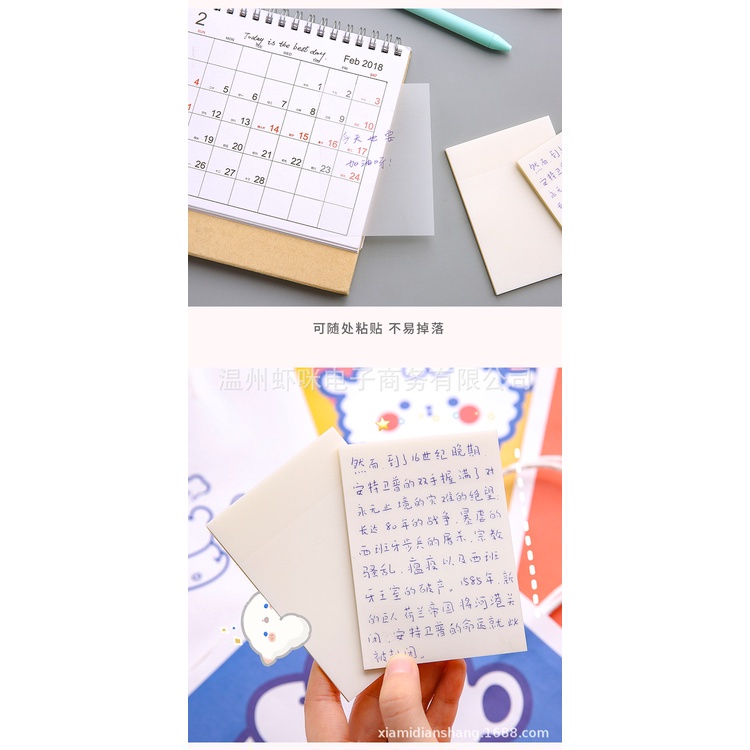 2
Today is the best day.
Feb 2018
SUN MON WED FRI SAT
1 2 3
4 5 6 7 8 9 10
11 12 13 14 15 16 17
19 20 21 22 23 24
26 27 28
今天也要
加油呀!
然而到
安特卫普
可随处粘贴 不易掉落
温州虾咪电子商务有限公司
然而,到了16世纪晚期,
安特卫普的双手握满了对
永无止境的灾难的绝望.
长达80年的战争、暴虐的
西班牙步兵的屠杀、宗教
骚乱、瘟疫以及西班
牙王室的破产。1585年,新
的巨人荷兰帝国将河港关
闭,安特卫普的命运就此
被封闭。
xiamidianshang.1688.com